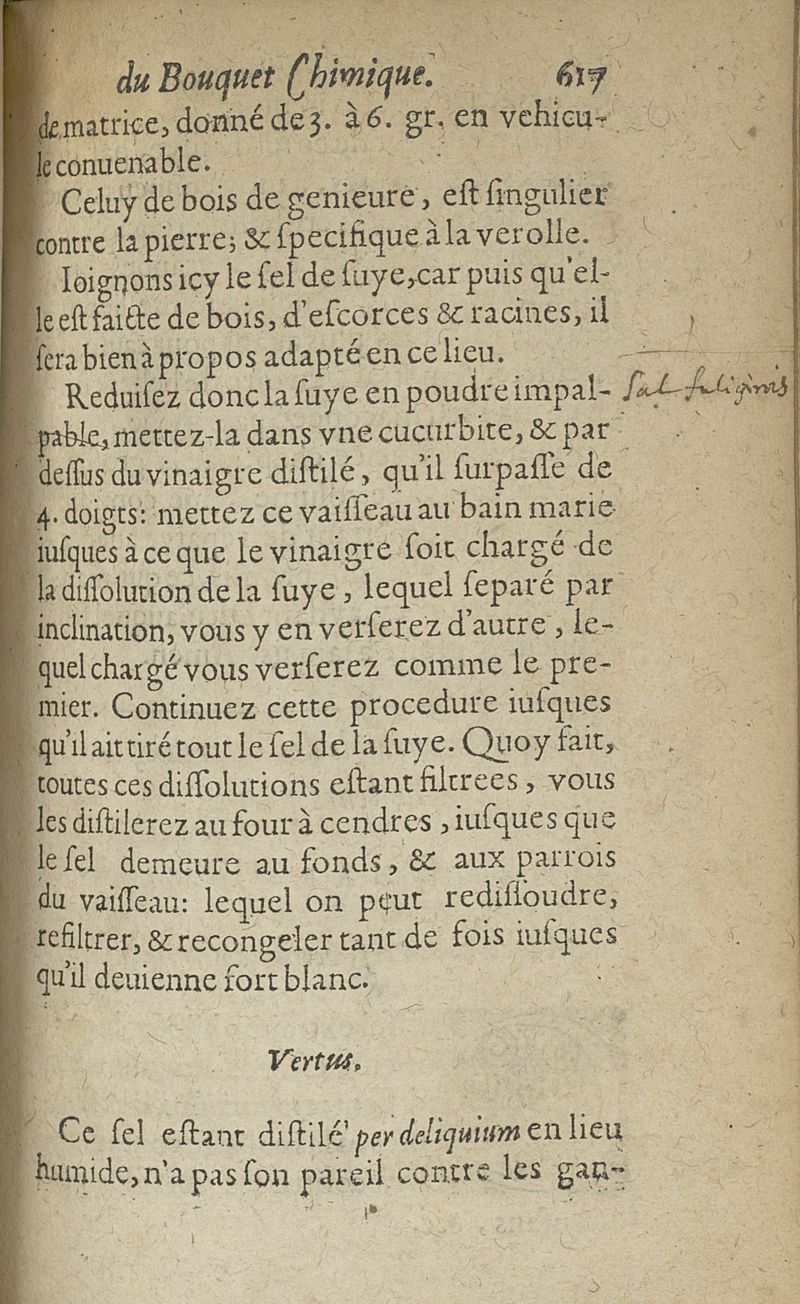 du Bouquet Chimique. 617
de matrice, donné de 3. à 6. gr. en vehicu-
le conuenable.
Celuy de bois de genieure, eſt ſingulier
contre la pierre; & ſpecifique à la verolle.
Ioignons icy le ſel de ſuye, car puis qu'el-
le eſt faicte de bois, d'eſcorces & racines, il
ſera bien à propos adapté en ce lieu.
Reduiſez donc la ſuye en poudre impal-
pable, mettez-la dans vne cucurbite, & par
deſſus du vinaigre diſtilé, qu'il ſurpaſſe de
4. doigts: mettez ce vaiſſeau au bain marie
iuſques à ce que le vinaigre ſoit chargé de
la diſſolution de la ſuye, lequel ſeparé par
inclination, vous y en verſerez d'autre, le-
quel chargé vous verſerez comme le pre-
mier. Continuez cette procedure iuſques
qu'il ait tiré tout le ſel de la ſuye. Quoy fait,
toutes ces diſſolutions eſtant filtrees, vous
les diſtilerez au four à cendres, iuſques que
le ſel demeure au fonds, & aux parrois
du vaiſſeau: lequel on peut rediſſoudre,
refiltrer, & recongeler tant de fois iuſques
qu'il deuienne fort blanc.
Sal fuliginis
Vertus.
Ce ſel eſtant diſtilé per deliquium en lieu
humide, n'a pas ſon pareil contre les gan-